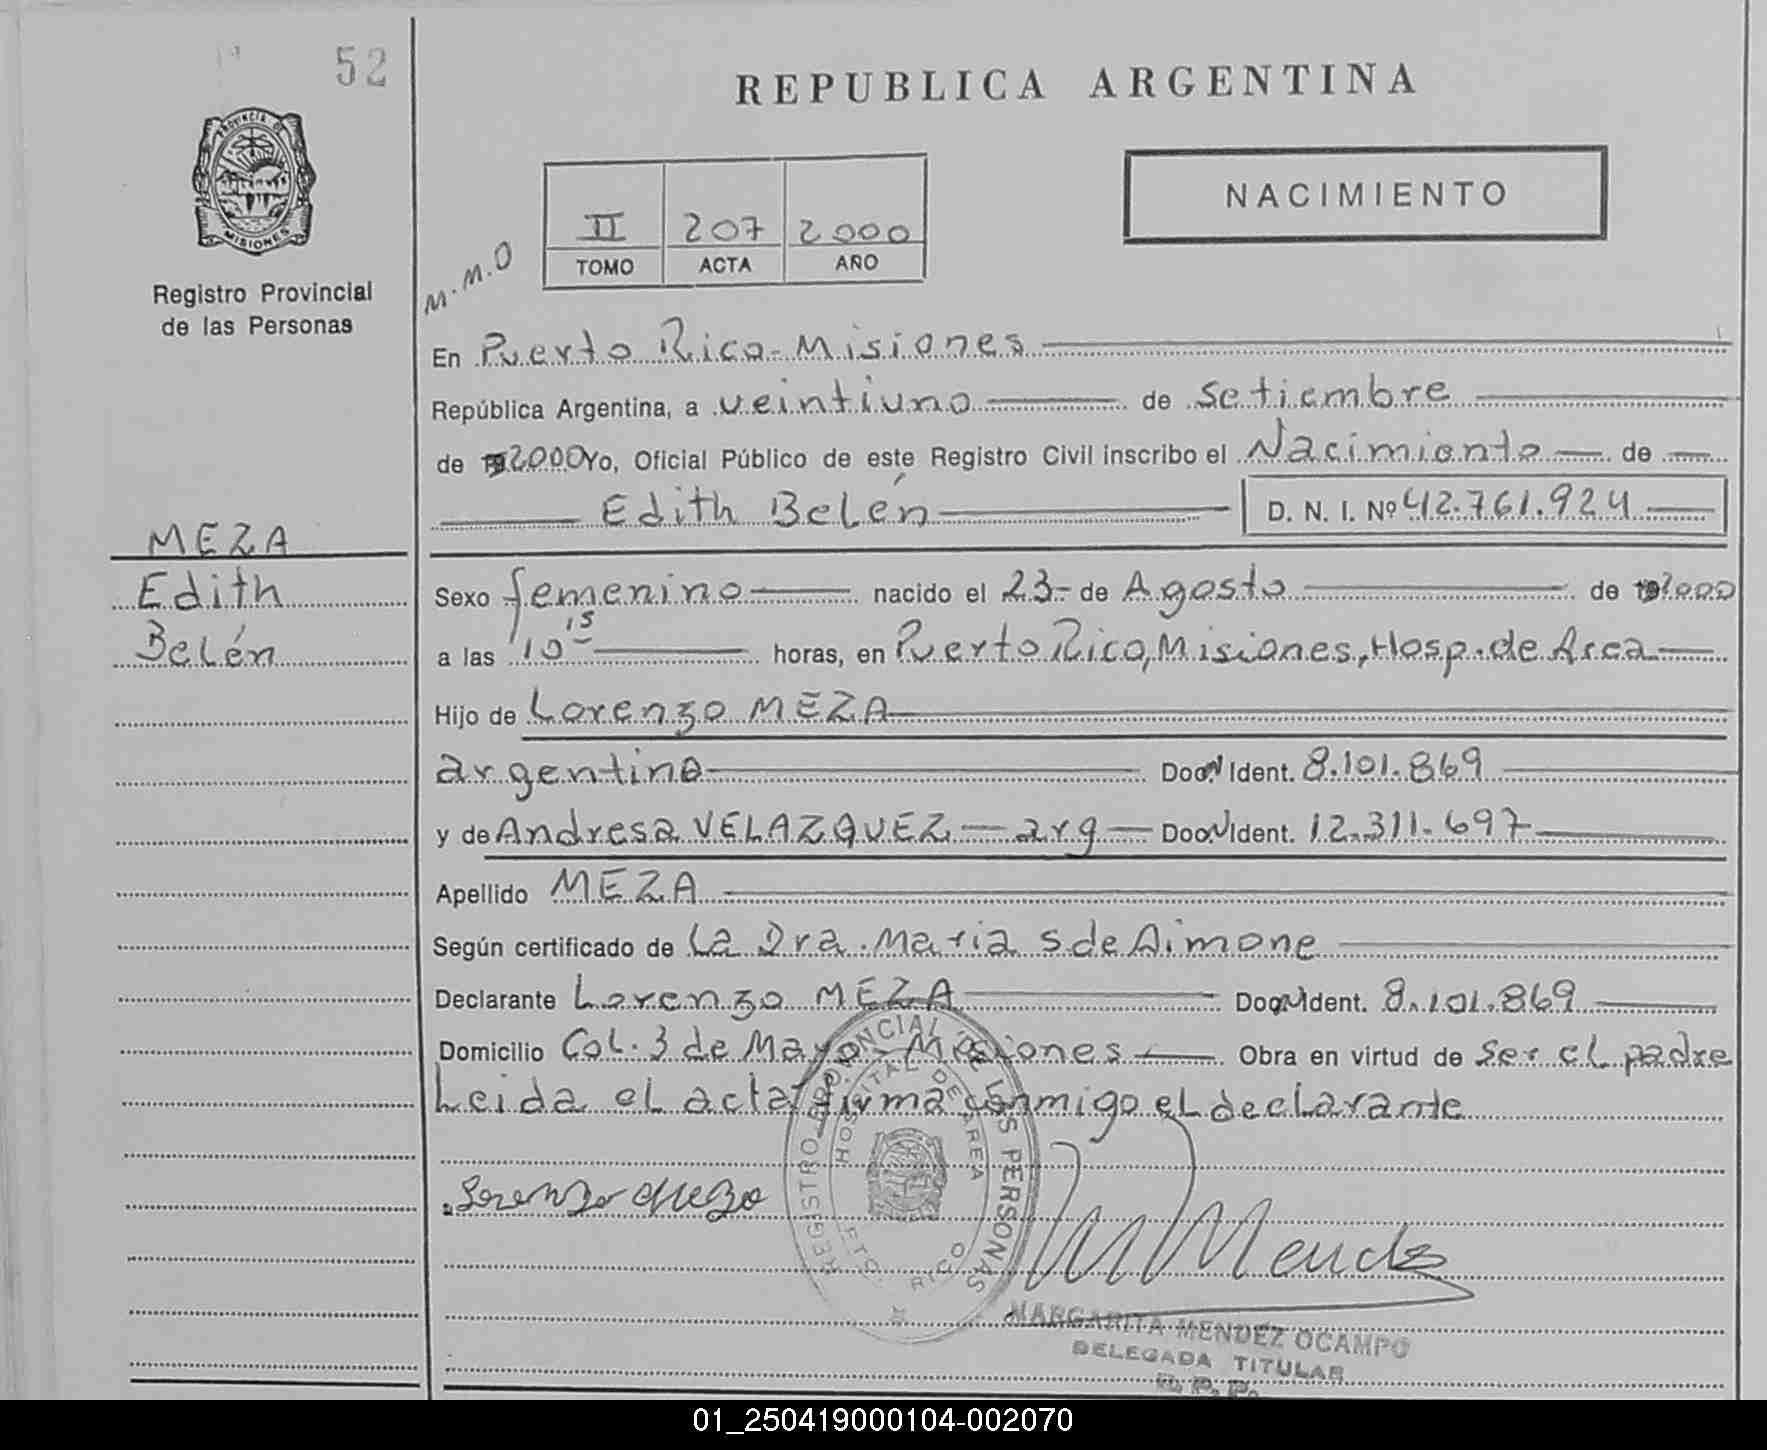 52
REPUBLICA ARGENTINA
PROVINCIA DE
MISIONES
Registro Provincial
de las Personas
NACIMIENTO
II 207 2000
TOMO ACTA AÑO
M.M.O
En Puerto Rico-Misiones
República Argentina, a veintiuno de Setiembre
de 2000 Yo, Oficial Público de este Registro Civil inscribo el Nacimiento de
Edith Belén D. N. I. Nº 42.761.924
MEZA
Edith
Belén
Sexo femenino nacido el 23- de Agosto de 2000
a las 10 15 horas, en Puerto Rico, Misiones, Hosp. de Area
Hijo de Lorenzo MEZA
argentino Doc. N Ident. 8.101.869
y de Andresa VELAZQUEZ - arg - Doc. N Ident. 12.311.697
Apellido MEZA
Según certificado de La Dra. Maria S de Aimone
Declarante Lorenzo MEZA Doc. N Ident. 8.101.869
Domicilio Col. 3 de Mayo - Misiones Obra en virtud de Ser el padre
Leida el acta firma conmigo el declarante
REGISTRO PROVINCIAL DE LAS PERSONAS
HOSPITAL DE AREA
PTO. RICO
Lorenzo Meza
M Mendez
MARGARITA MENDEZ OCAMPO
DELEGADA TITULAR
R. P. P.
01_250419000104-002070